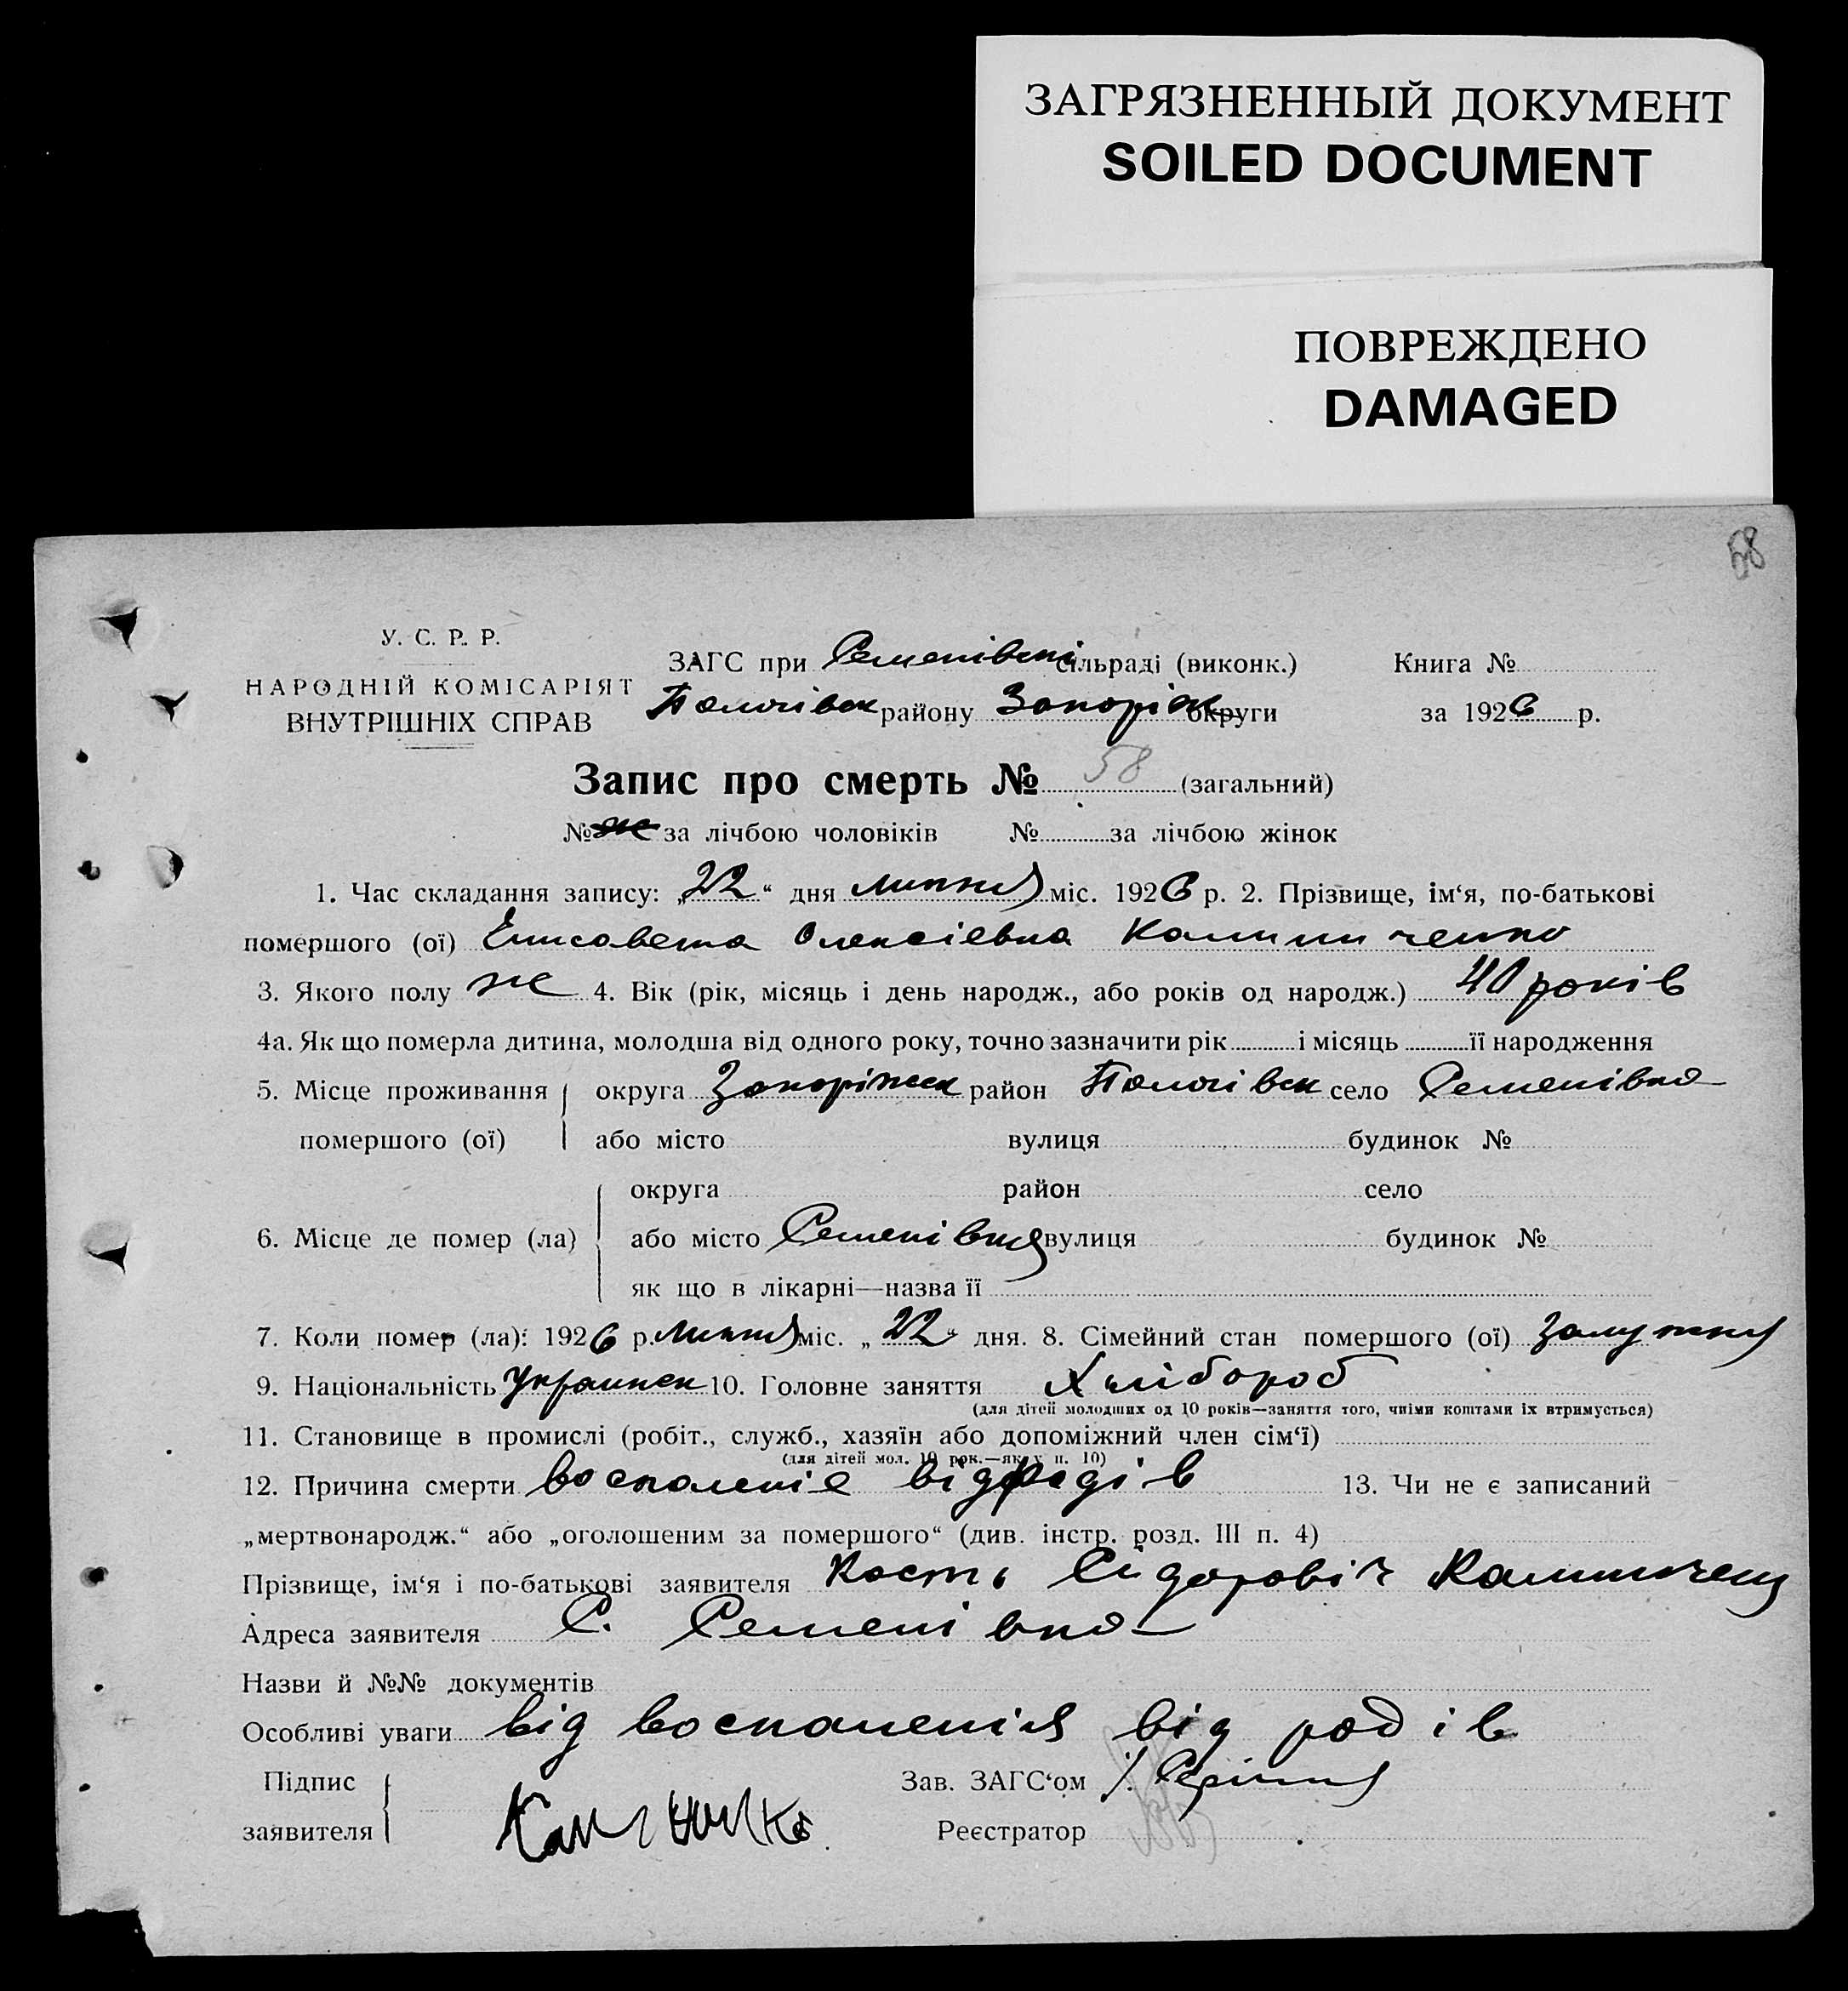 ЗАГРЯЗНЕННЫЙ ДОКУМЕНТ
SOILED DOCUMENT
ПОВРЕЖДЕНО
DAMAGED
58
У. С. Р. Р.
НАРОДНІЙ КОМІСАРІЯТ
ВНУТРІШНІХ СПРАВ
ЗАГС при Семенівскі сільраді (виконк.) Книга №
Пологівск району Запоріж округи за 1926 р.
Запис про смерть № 58 (загальний)
№ ж за лічбою чоловіків № за лічбою жінок
1. Час складання запису: „22“ дня липня міс. 1926 р. 2. Прізвище, ім‘я, по-батькові
помершого (ої) Елисавета Олексіевна Калиниченко
3. Якого полу ж 4. Вік (рік, місяць і день народж., або років од народж.) 40 років
4а. Як що померла дитина, молодша від одного року, точно зазначити рік і місяць її народження
5. Місце проживання округа Запоріжск район Пологівск село Семенівка
помершого (ої) або місто вулиця будинок №
округа район село
6. Місце де помер (ла) або місто Семенівка вулиця будинок №
як що в лікарні—назва її
7. Коли помер (ла): 1926 р. липня міс. „22“ дня. 8. Сімейний стан помершого (ої) замужня
9. Національність Украинск 10. Головне заняття Хлібороб
(для дітей молодших од 10 років—заняття того, чиїми коштами їх втримується)
11. Становище в промислі (робіт., служб., хазяїн або допоміжний член сім‘ї)
(для дітей мол. 10 рок.—як у п. 10)
12. Причина смерти воспаленіе від родів 13. Чи не є записаний
„мертвонародж.“ або „оголошеним за помершого“ (див. інстр. розд. III п. 4)
Прізвище, ім‘я і по-батькові заявителя Кость Сидоровіч Калиниченко
Адреса заявителя С. Семенівка
Назви й №№ документів
Особливі уваги від воспаленія від родів
Підпис Зав. ЗАГС‘ом
заявителя Реєстратор